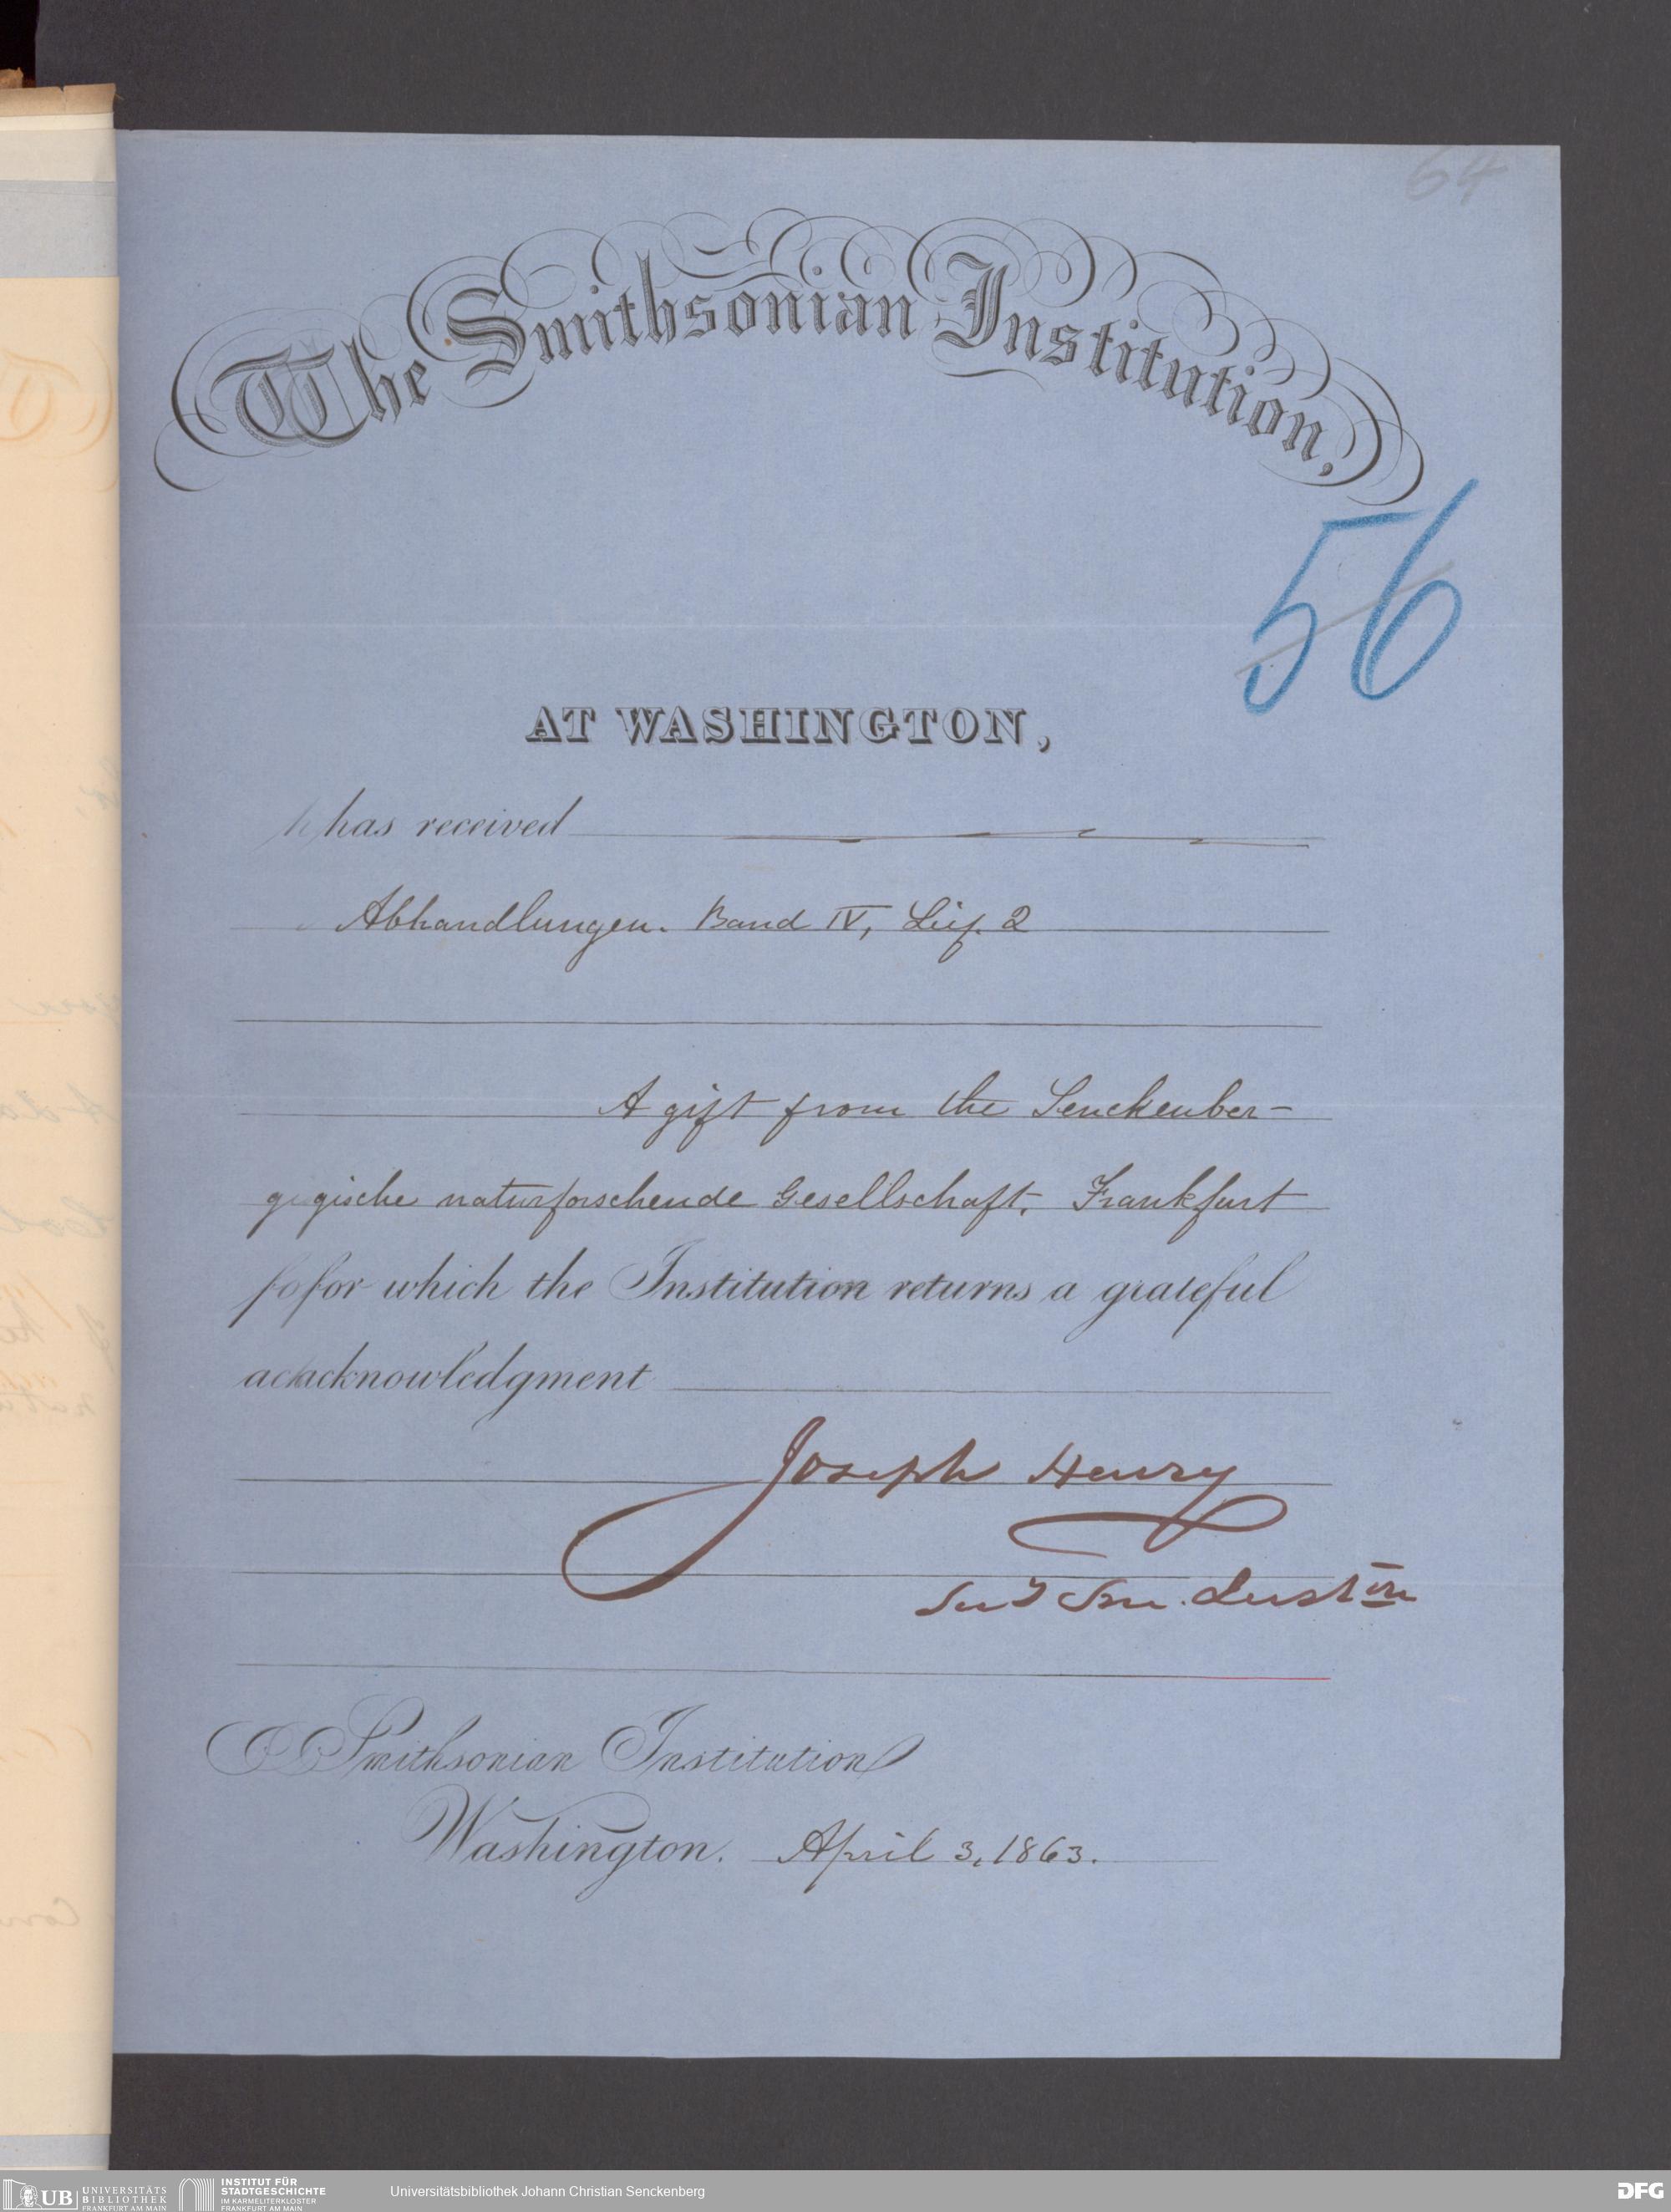 64
The Smithsonian Institution,
56
AT WASHINGTON,
has received
Abhandlungen. Band IV, Lief. 2
A gift from the Senckenber-
gische naturforschende Gesellschaft, Frankfurt
for which the Institution returns a grateful
acknowledgment
Joseph Henry
Sec'y Sm. Instion
Smithsonian Institution
Washington. April 3, 1863.
UB UNIVERSITÄTS
BIBLIOTHEK
FRANKFURT AM MAIN
INSTITUT FÜR
STADTGESCHICHTE
IM KARMELITERKLOSTER
FRANKFURT AM MAIN
Universitätsbibliothek Johann Christian Senckenberg
DFG